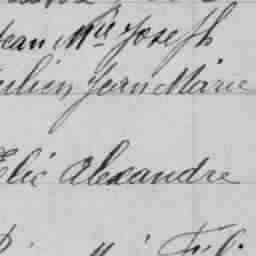 Jean Mie Joseph
Julien Jean Marie
Elie Alexandre